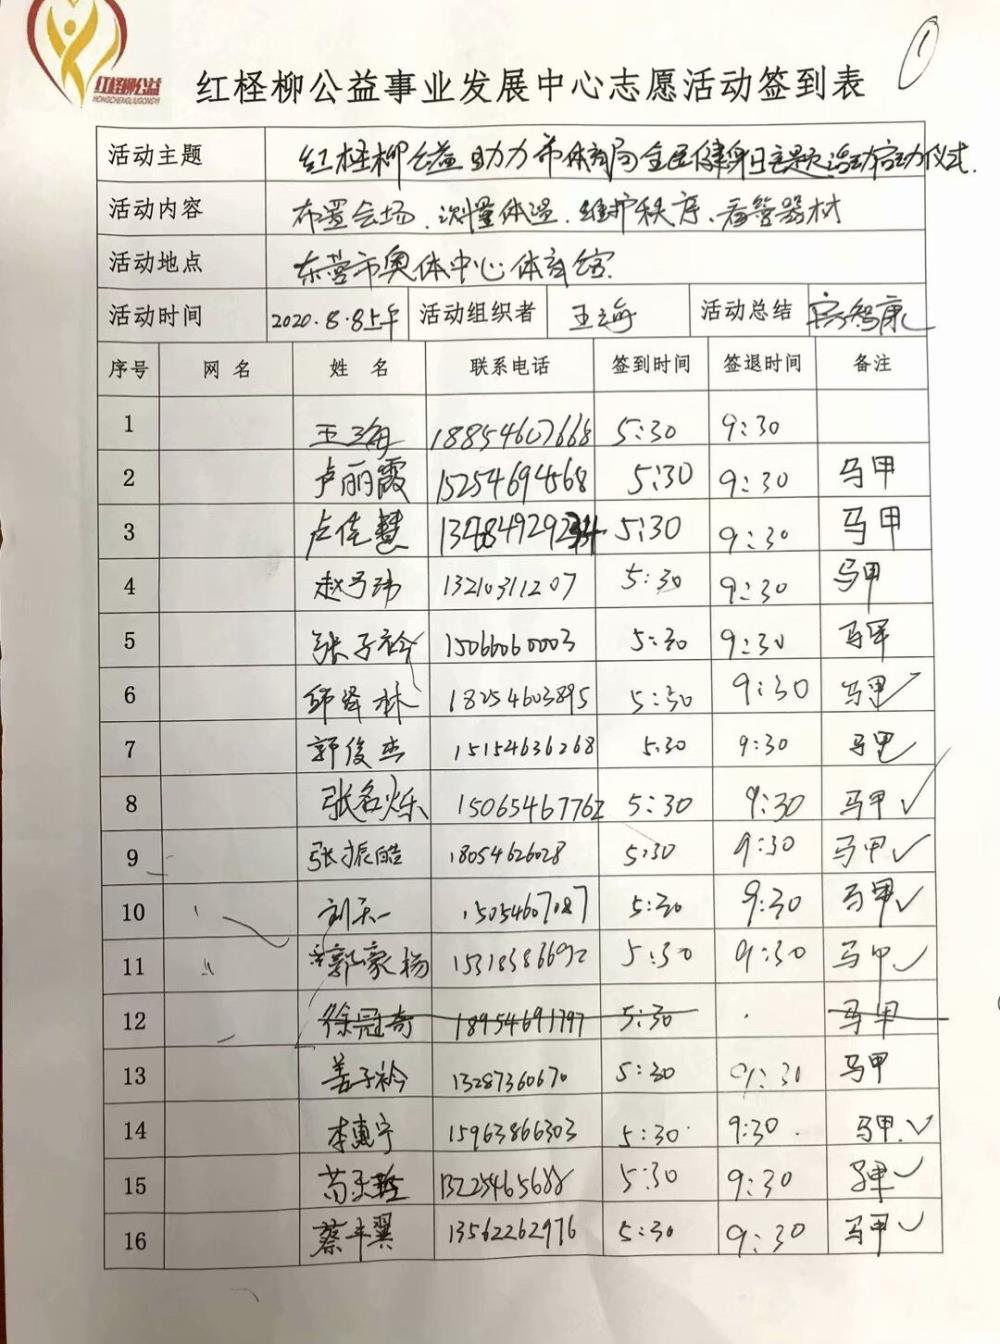 红柽柳公益
HONGCHENGLIUGONGYI
①
红柽柳公益事业发展中心志愿活动签到表
活动主题 红柽柳公益助力市体育局全民健身日主题活动启动仪式.
活动内容 布置会场、测量体温、维护秩序、看管器材
活动地点 东营市奥体中心体育馆
活动时间 2020.8.8上午 活动组织者 王海 活动总结
序号 网名 姓名 联系电话 签到时间 签退时间 备注
1 王海 18854607668 5:30 9:30
2 卢丽霞 15254694568 5:30 9:30 马甲
3 卢佳慧 5:30 9:30 马甲
4 13210311207 5:30 9:30 马甲
5 张子衿 15066060003 5:30 9:30 马甲
6 18254603895 5:30 9:30 马甲✓
7 郭俊杰 15154636268 5:30 9:30 马甲✓
8 张名烁 15065467762 5:30 9:30 马甲✓
9 张振皓 18054626028 5:30 9:30 马甲✓
10 刘天一 15054607087 5:30 9:30 马甲✓
11 郭家杨 15318386692 5:30 9:30 马甲✓
12 徐冠奇 18954691797 5:30 马甲
13 姜子衿 13287360670 5:30 9:30 马甲
14 李惠宁 15963866303 5:30 9:30 马甲✓
15 13225465688 5:30 9:30 马甲✓
16 蔡丰翼 13562262976 5:30 9:30 马甲✓